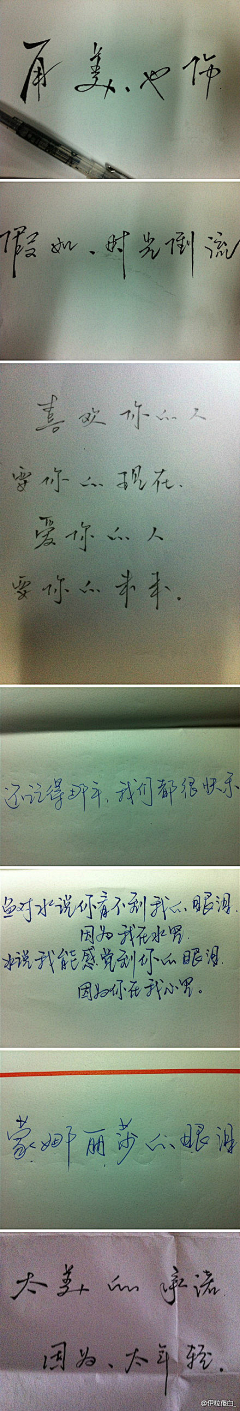 再美、也伤
假如、时光倒流
喜欢你的人
要你的现在.
爱你的人
要你的未来.
还记得那年,我们都很快乐
鱼对水说你看不到我的眼泪.
因为我在水里.
水说我能感觉到你的眼泪.
因为你在我心里。
蒙娜丽莎的眼泪
太美的承诺.
因为、太年轻.